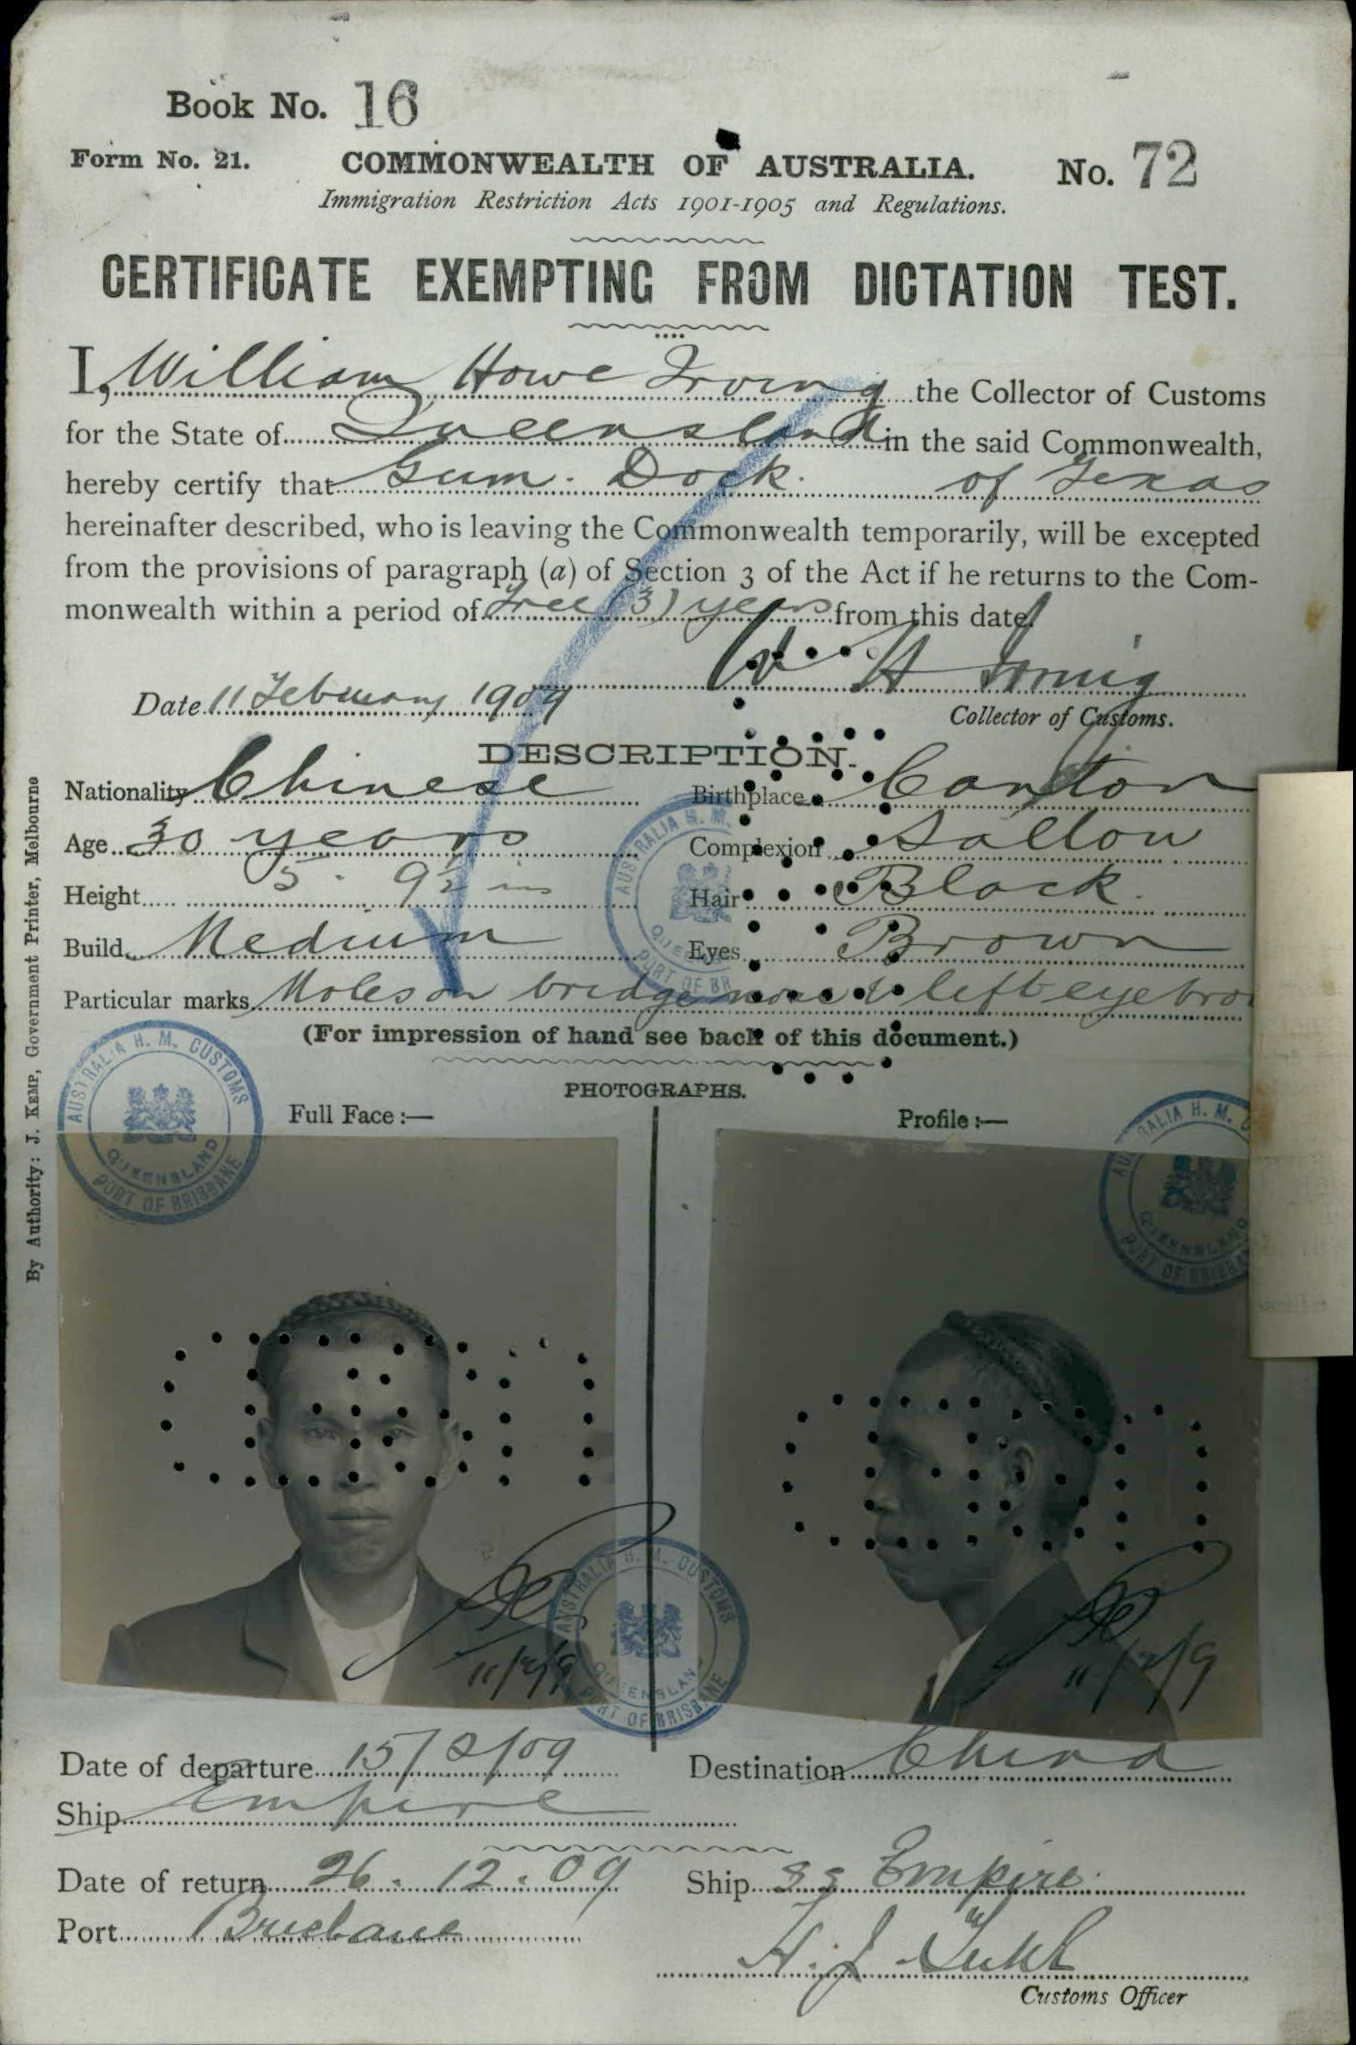 Book No. 16
Form No. 21.
COMMONWEALTH OF AUSTRALIA.
No. 72
Immigration Restriction Acts 1901-1905 and Regulations.
CERTIFICATE EXEMPTING FROM DICTATION TEST.
I, William Howe Irving the Collector of Customs
for the State of Queensland in the said Commonwealth,
hereby certify that Gum Dock. of Texas
hereinafter described, who is leaving the Commonwealth temporarily, will be excepted
from the provisions of paragraph (a) of Section 3 of the Act if he returns to the Com-
monwealth within a period of (3) years from this date.
W H Irving
Date 11 February 1909
Collector of Customs.
DESCRIPTION.
Nationality Chinese Birthplace Canton
Age 30 years Complexion Sallow
Height 5. 9½ ins Hair Black.
Build Medium Eyes Brown
Particular marks Moles on bridge nose & left eyebrow
(For impression of hand see back of this document.)
PHOTOGRAPHS.
Full Face :— Profile :—
AUSTRALIA H. M. CUSTOMS
QUEENSLAND
PORT OF BRISBANE
AUSTRALIA H. M.
PORT OF BR
RALIA H. M. C
QUEENSLAND
PORT OF BRISBA
AUSTRALIA H. M. CUSTOMS
QUEENSLAN
PORT OF BRISBANE
11/2/9
11/2/9
By Authority: J. KEMP, Government Printer, Melbourne
Date of departure 15/2/09 Destination China
Ship Empire
Date of return 26. 12. 09 Ship SS Empire.
Port Brisbane
H. J.
Customs Officer